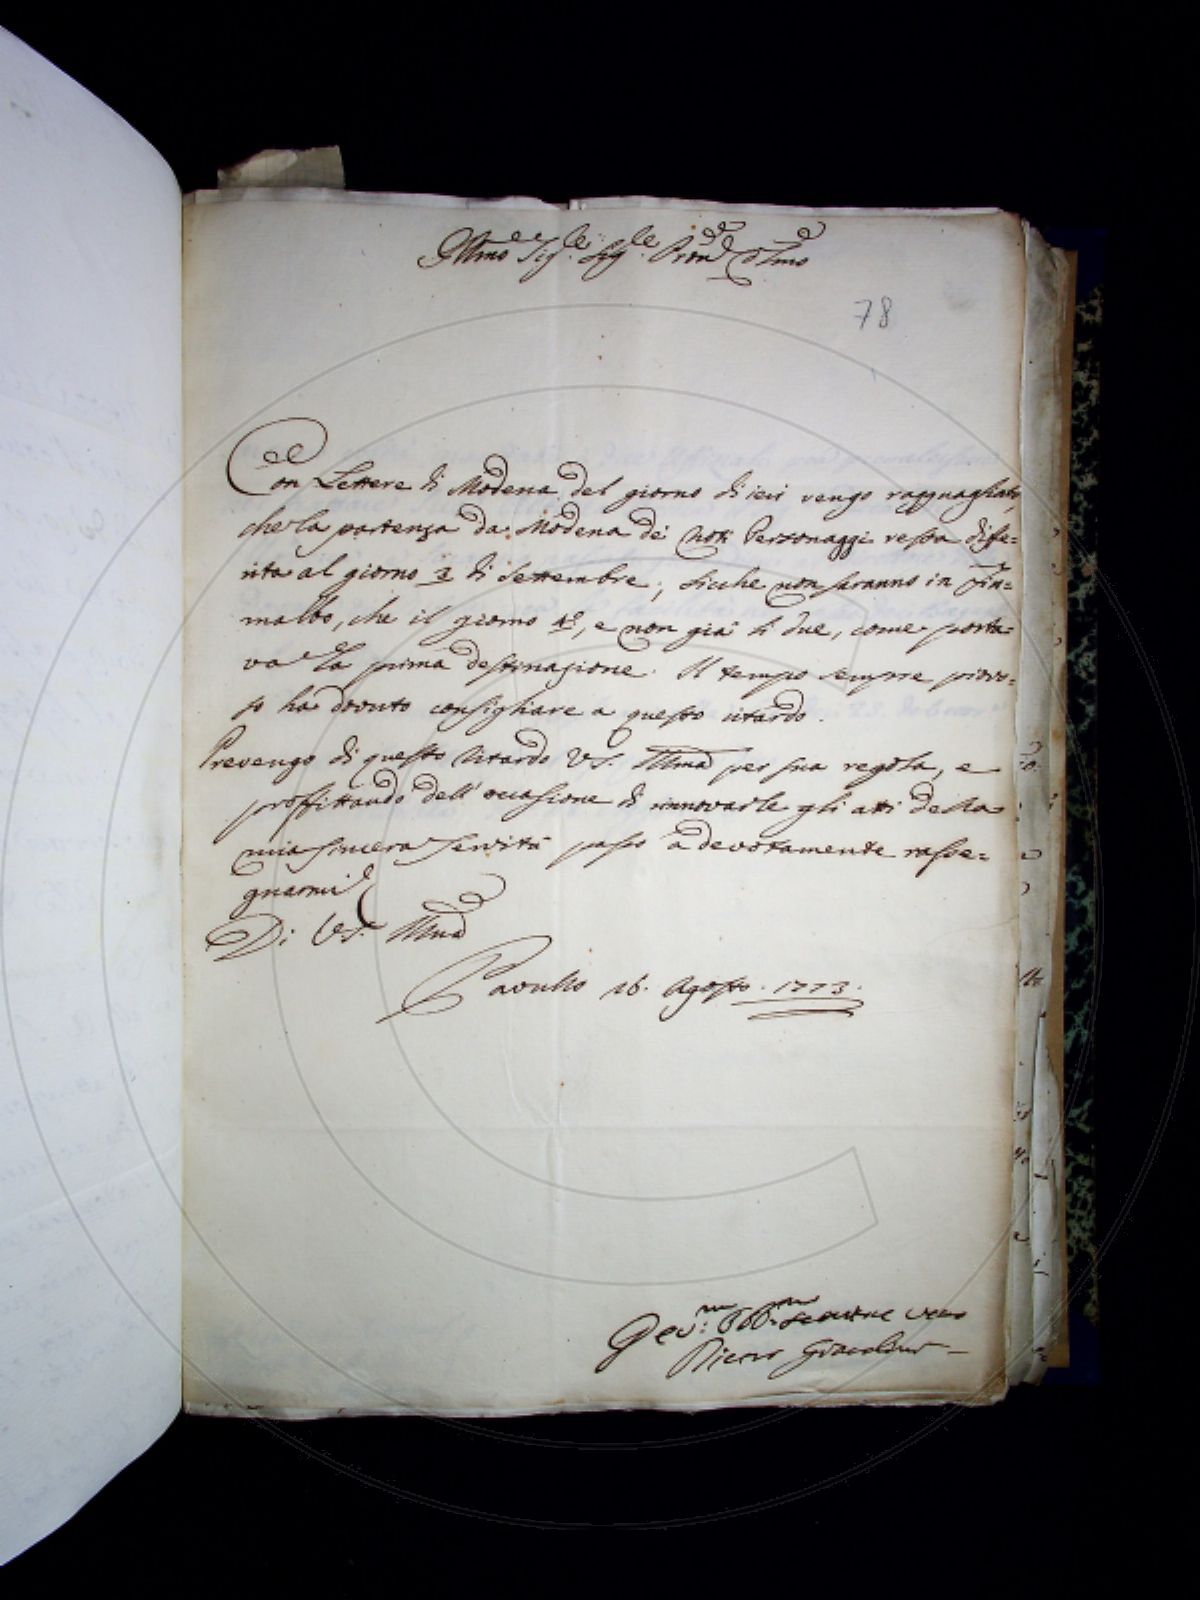 Illmo Sig.re Sig.re Pron Colmo
78
Con Lettere di Modena del giorno di ieri vengo ragguagliato,
che la partenza da Modena dei noti Personaggi resta diffe=
rita al giorno 3 di Settembre, sicche non saranno in Fiu=
malbo, che il giorno 4º, e non già li due, come porta=
va la prima destinazione. Il tempo sempre piovo=
so ha dovuto consigliare a questo ritardo.
Prevengo di questo ritardo VS. Illma per sua regola, e
proffittando dell'occasione di rinnovarle gli atti della
mia sincera servitù passo a devotamente rasse=
gnarmi
Di VS. Illma
Pavullo 26. Agosto. 1773.
Dev.mo Obb.mo Servitore vero
Pietro